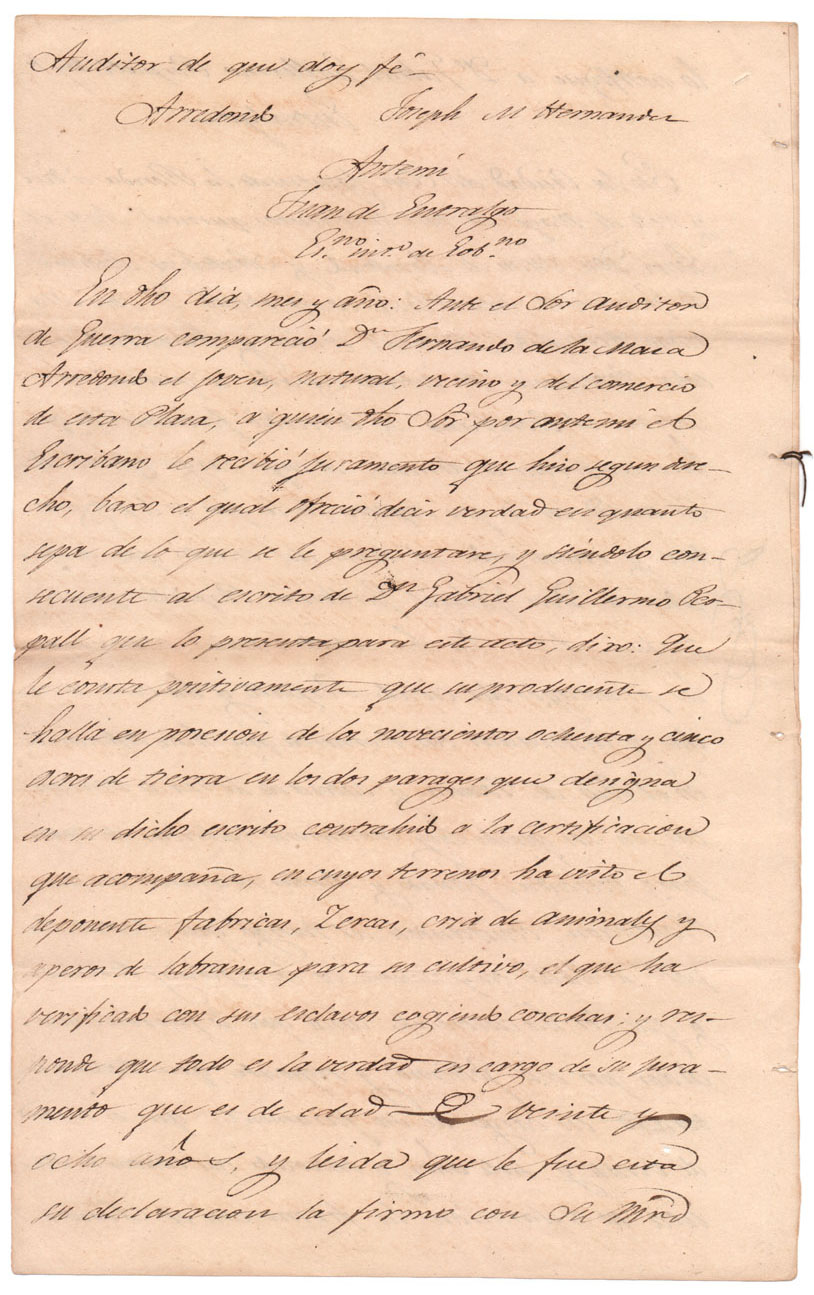 Auditor de que doy fé_
Arredondo Joseph M Hernandez
Antemi
Juan de Entralgo
Es.no int.o de Gob.no
En dho dia, mes y año: Ante el Sor Auditor
de Guerra compareció Dn Fernando de la Maza
Arredondo el joven, natural, vecino y del comercio
de esta Plaza, a quien dho Sor por antemi el
Escribano le recibió juramento que hizo segun dere-
cho, baxo el qual ofreció decir verdad en quanto
sepa de lo que se le preguntare, y siendolo con-
secuente al escrito de Dn Gabriel Guillermo Peo-
pall que lo presenta para este acto, dixo: Que
le consta positivamente que su producente se
halla en posesion de los novecientos ochenta y cinco
acres de tierra en los dos parages que designa
en su dicho escrito contrahido a la certificacion
que acompaña, en cuyos terrenos ha visto el
deponente fabricas, Zercas, cria de animales y
aperos de labranza para su cultivo, el que ha
verificado con sus esclavos cogiendo cosechas: y res-
ponde que todo es la verdad en cargo de su jura-
mento que es de edad de veinte y
ocho años, y leida que le fue esta
su declaracion la firmo con Su Mrd